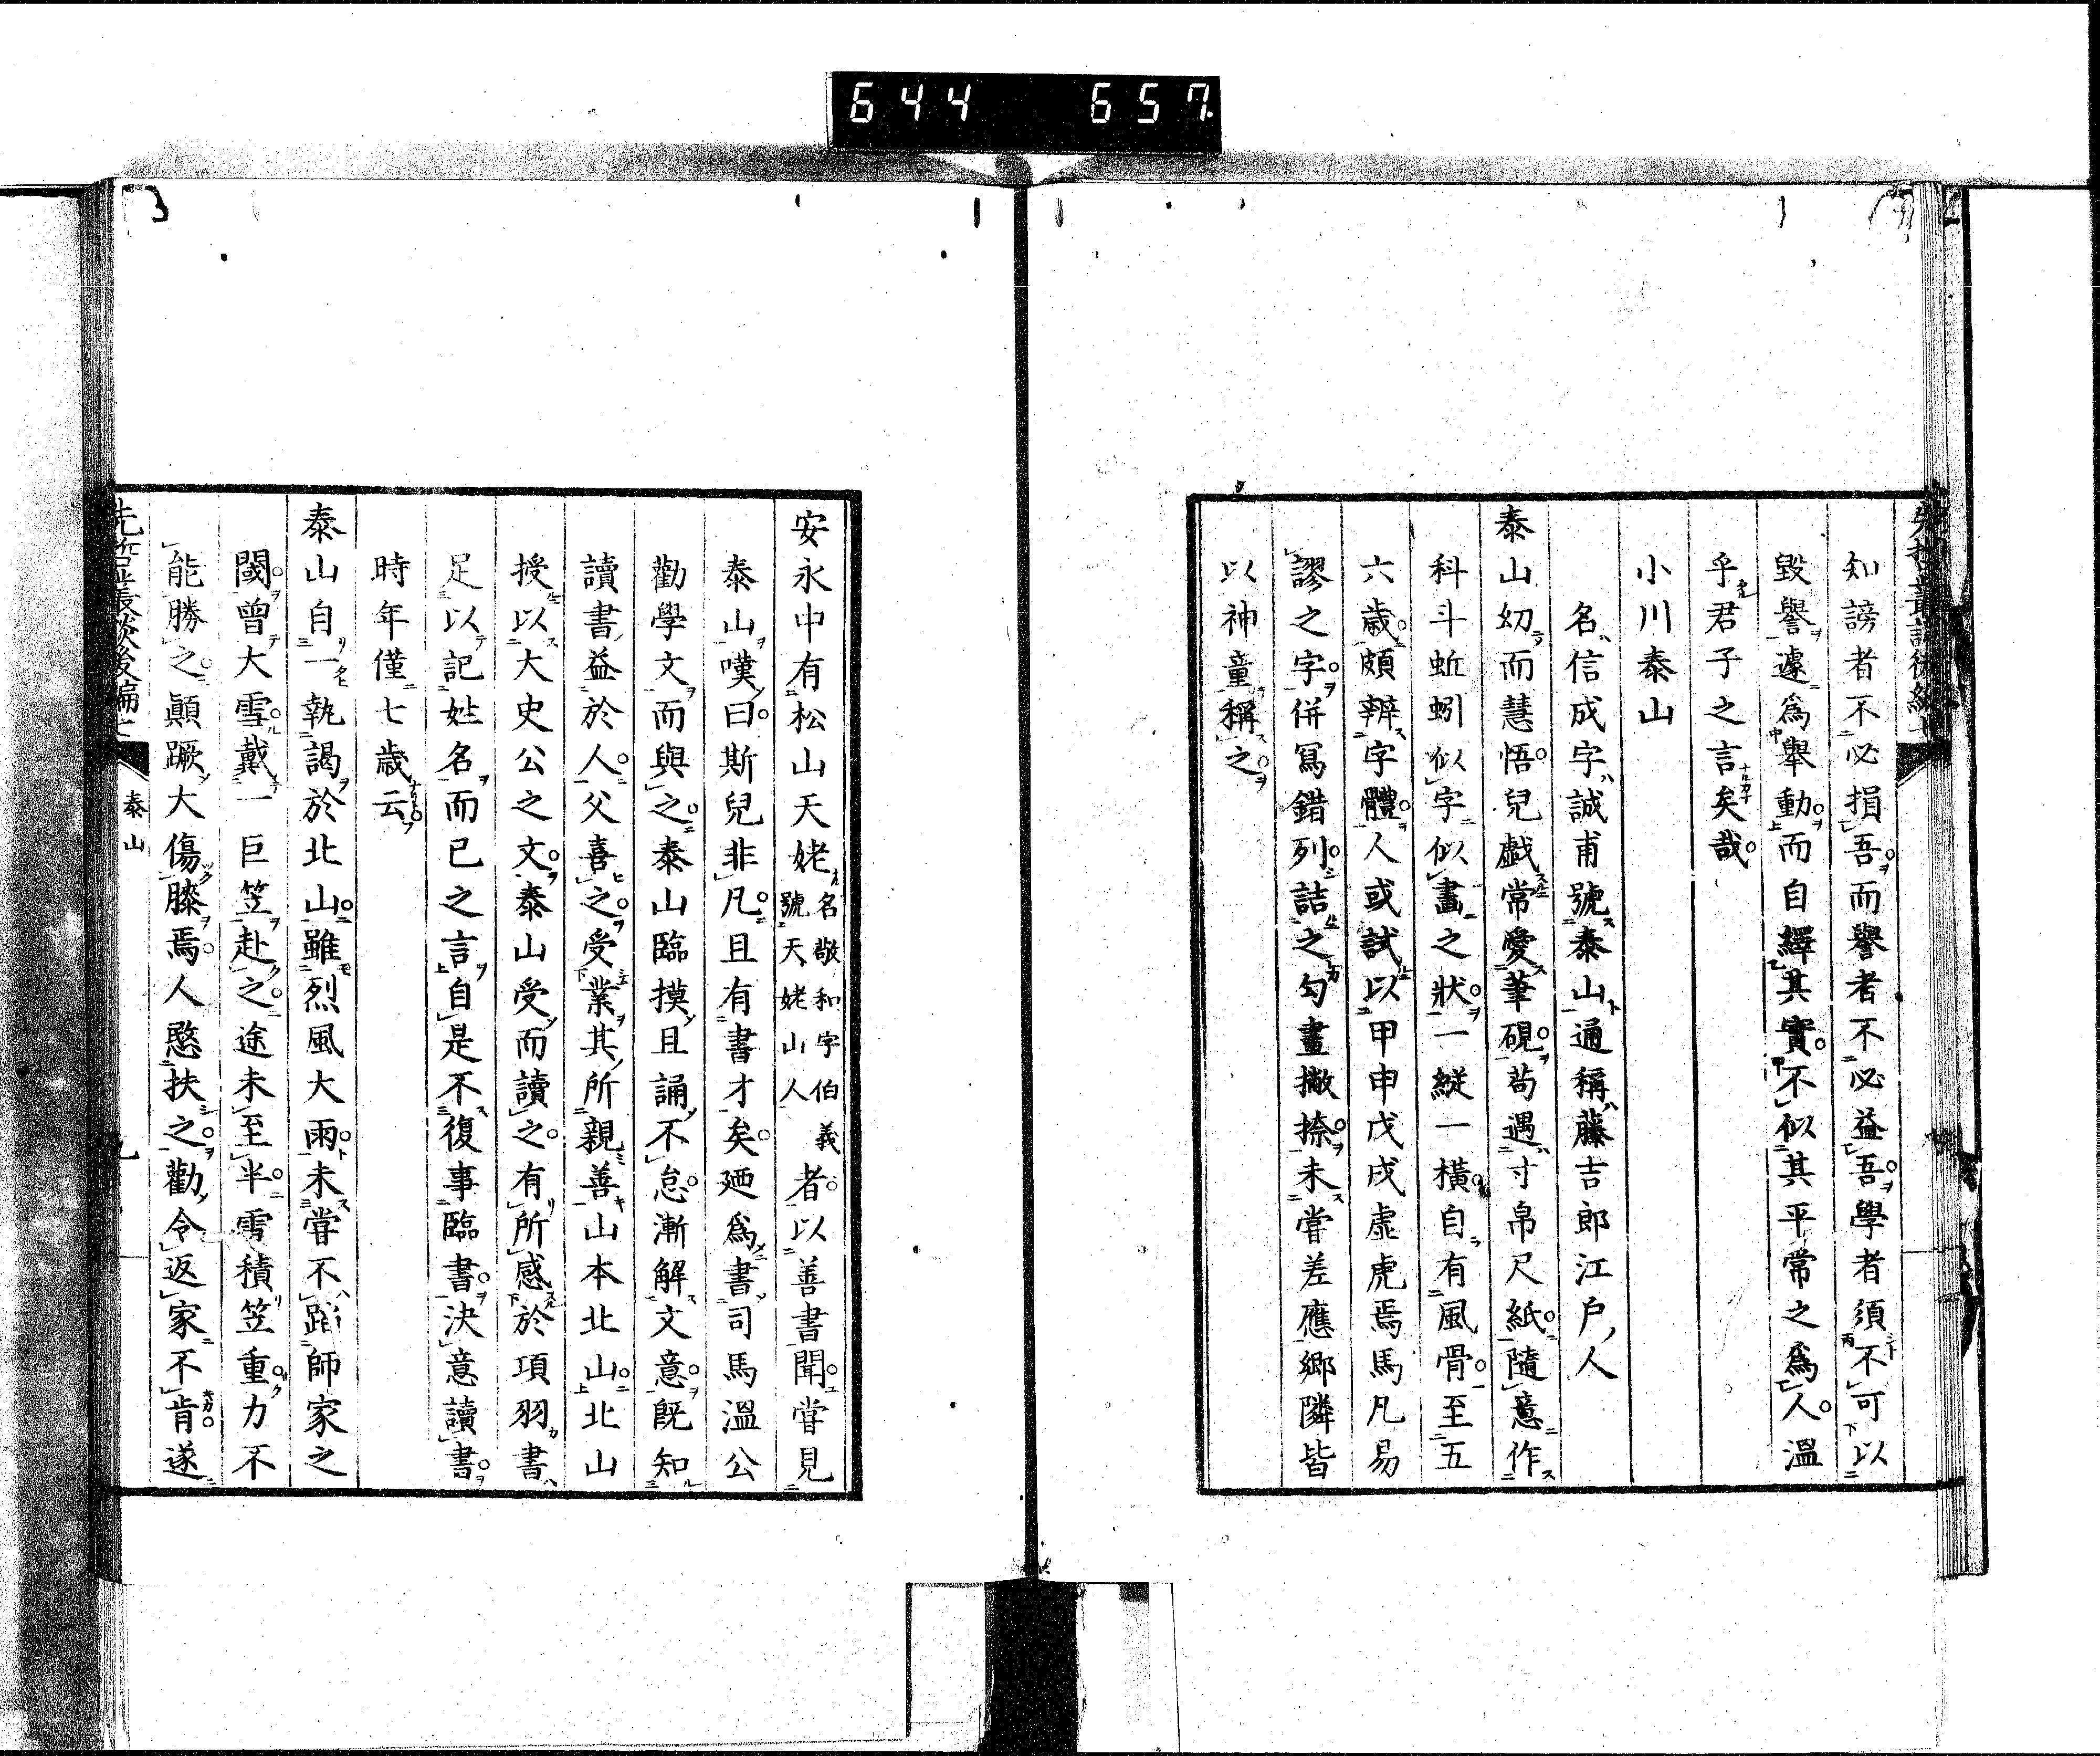 644 657
知謗者不必損吾而譽者不必益吾學者須不可以
毀譽遽爲擧動而自繹其實不似其平常之爲人溫
乎君子之言矣哉
小川泰山
名信成字誠甫號泰山通稱藤吉郎江戸人
泰山幼而慧悟兒戯常愛筆硯苟遇寸帛尺紙隨意作
科斗蚯蚓似字似畫之狀一縱一橫自有風骨至五
六歳頗辨字體人或試以甲申戊戌虛虎焉馬凡易
謬之字併寫錯列詰之勾畫撇捺未嘗差應鄉隣皆
以神童稱之
安永中有松山天姥名敬和字伯義號天姥山人者以善書聞嘗見
泰山嘆曰斯兒非凡且有書才矣廼爲書司馬溫公
勸學文而與之泰山臨摸且誦不怠漸解文意既知
讀書益於人父喜之受業其所親善山本北山北山
授以大史公之文泰山受而讀之有所感於項羽書
足以記姓名而已之言自是不復事臨書決意讀書
時年僅七歳云
泰山自一執謁於北山雖烈風大雨未嘗不蹈師家之
閾曾大雪戴一巨笠赴之途未至半雪積笠重力不
能勝之顛蹶大傷膝焉人愍扶之勸令返家不肯遂
先哲叢談後編七
泰山